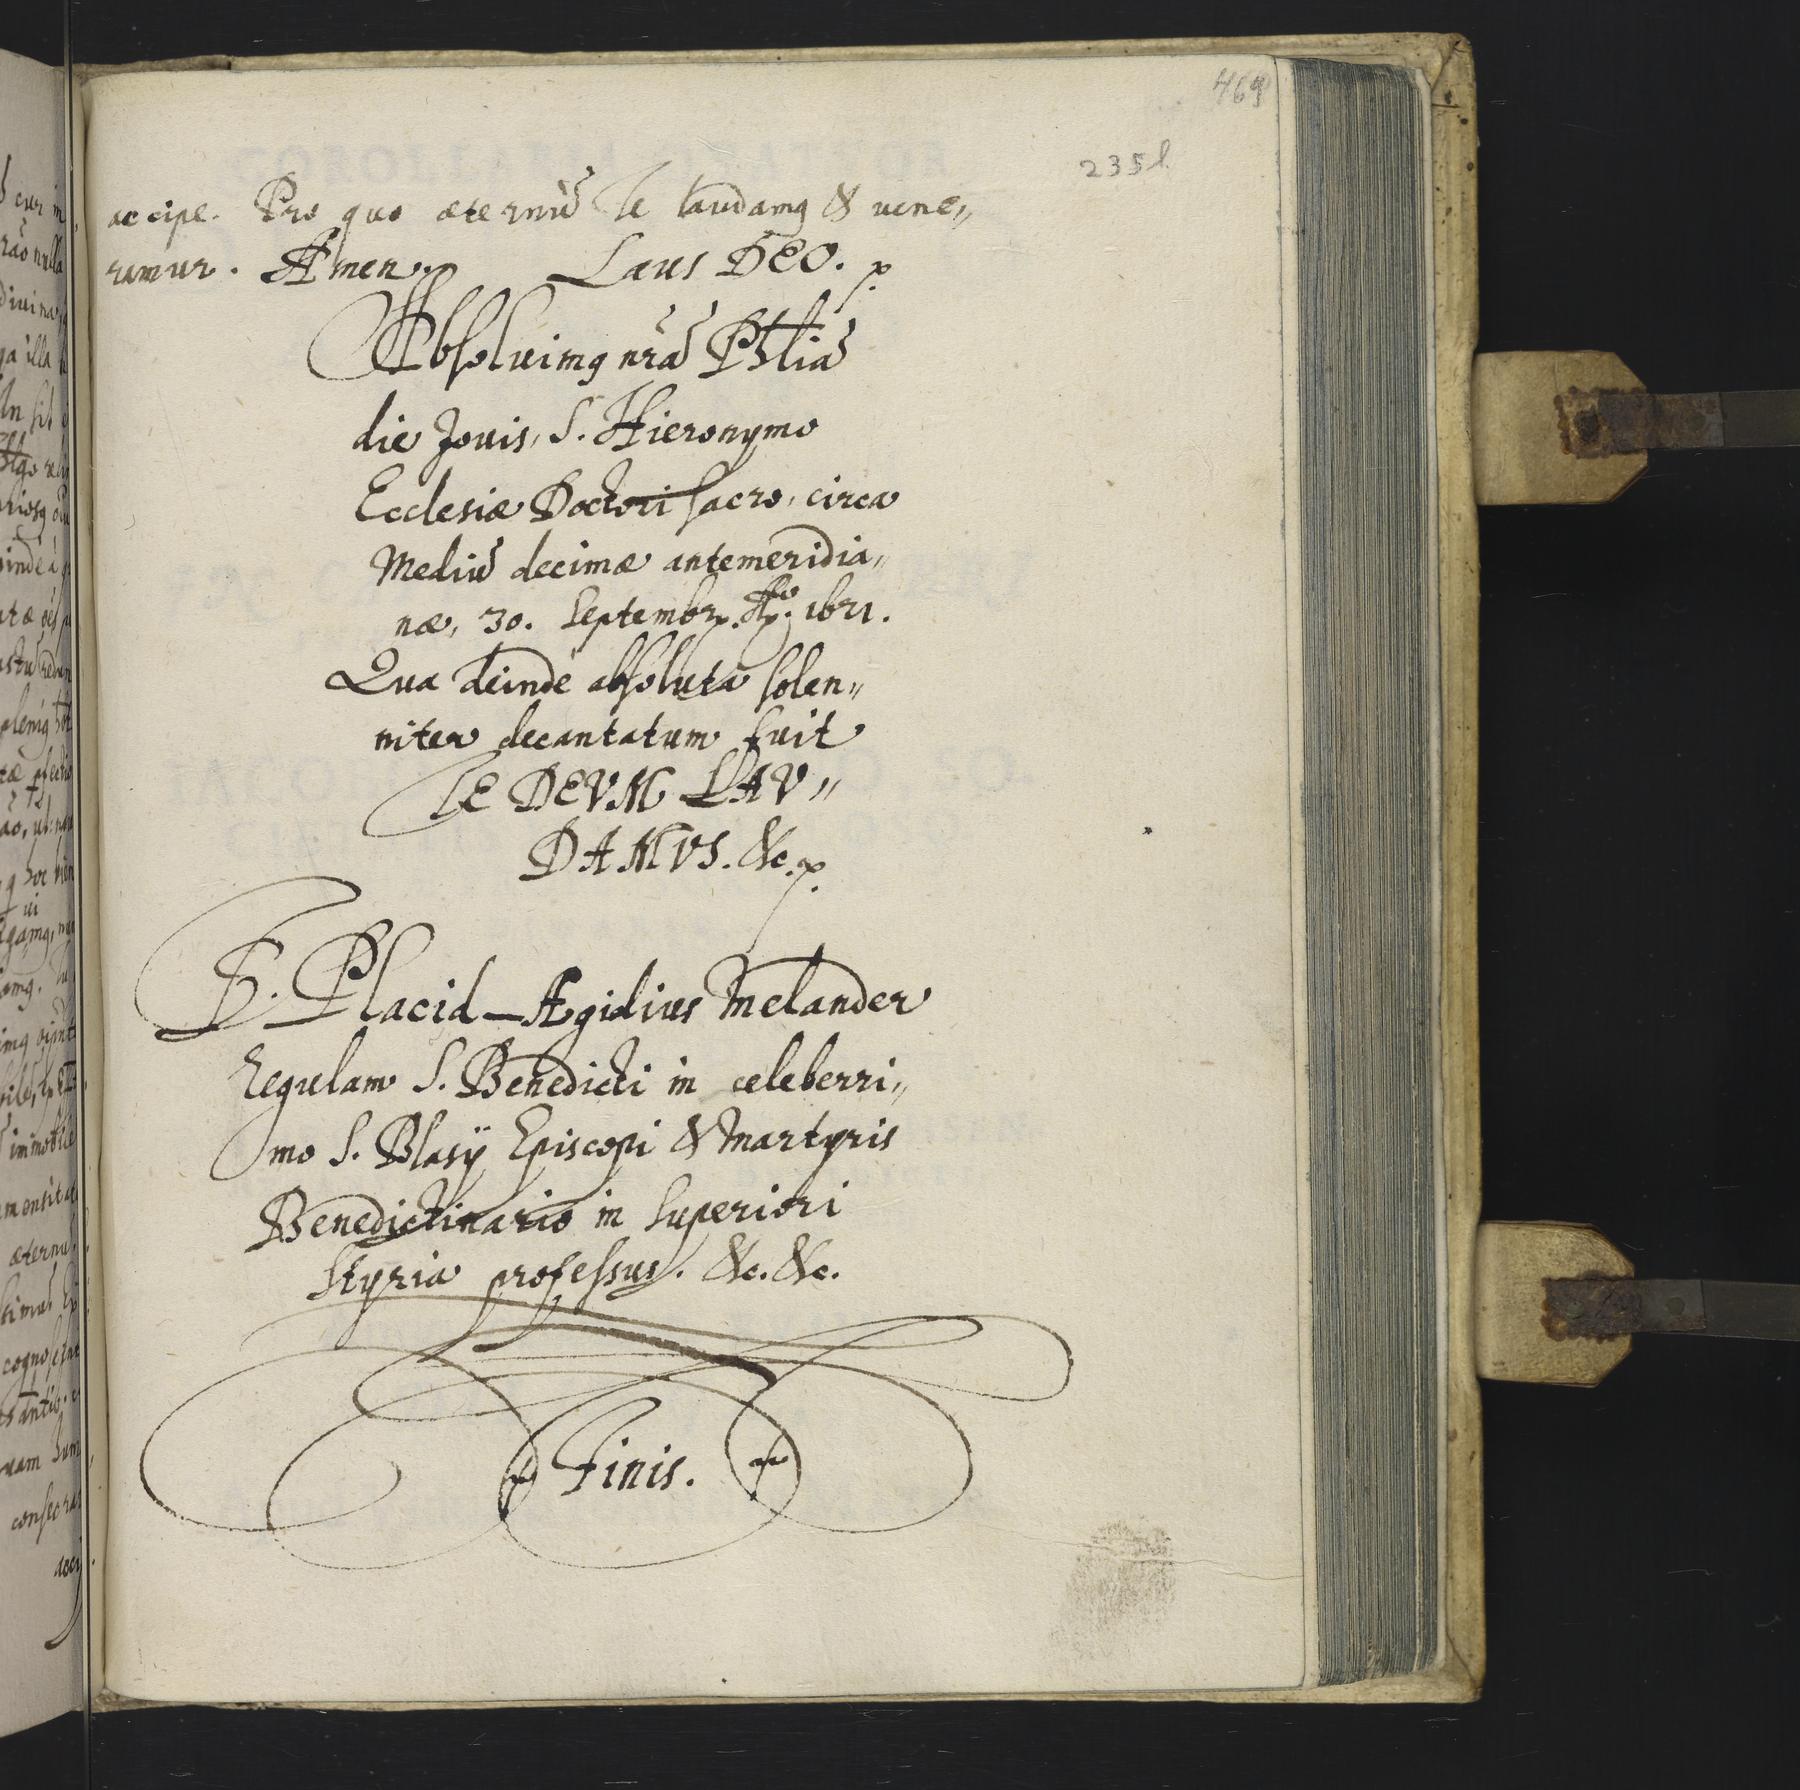 469
235 l.
accipe. Pro quo æternũ Te laudamꝰ & uene„
remur. Amen. Laus DEO.
Absoluimꝰ nrã Phliã
die Jouis, S. Hieronymo
Ecclesiæ Doctori sacro, circa
Mediũ decimæ antemeridia„
næ, 30. Septembr. Aº. 1621.
Qua deindè absoluta solen„
niter decantatum fuit
TE DEVM LAV„
DAMVS. &c.
F. Placid—Ægidius Melander
Regulam S. Benedicti in celeberri„
mo S. Blasÿ Episcopi & Martyris
Benedictinario in Superiori
Styria professus. &c. &c.
Finis.